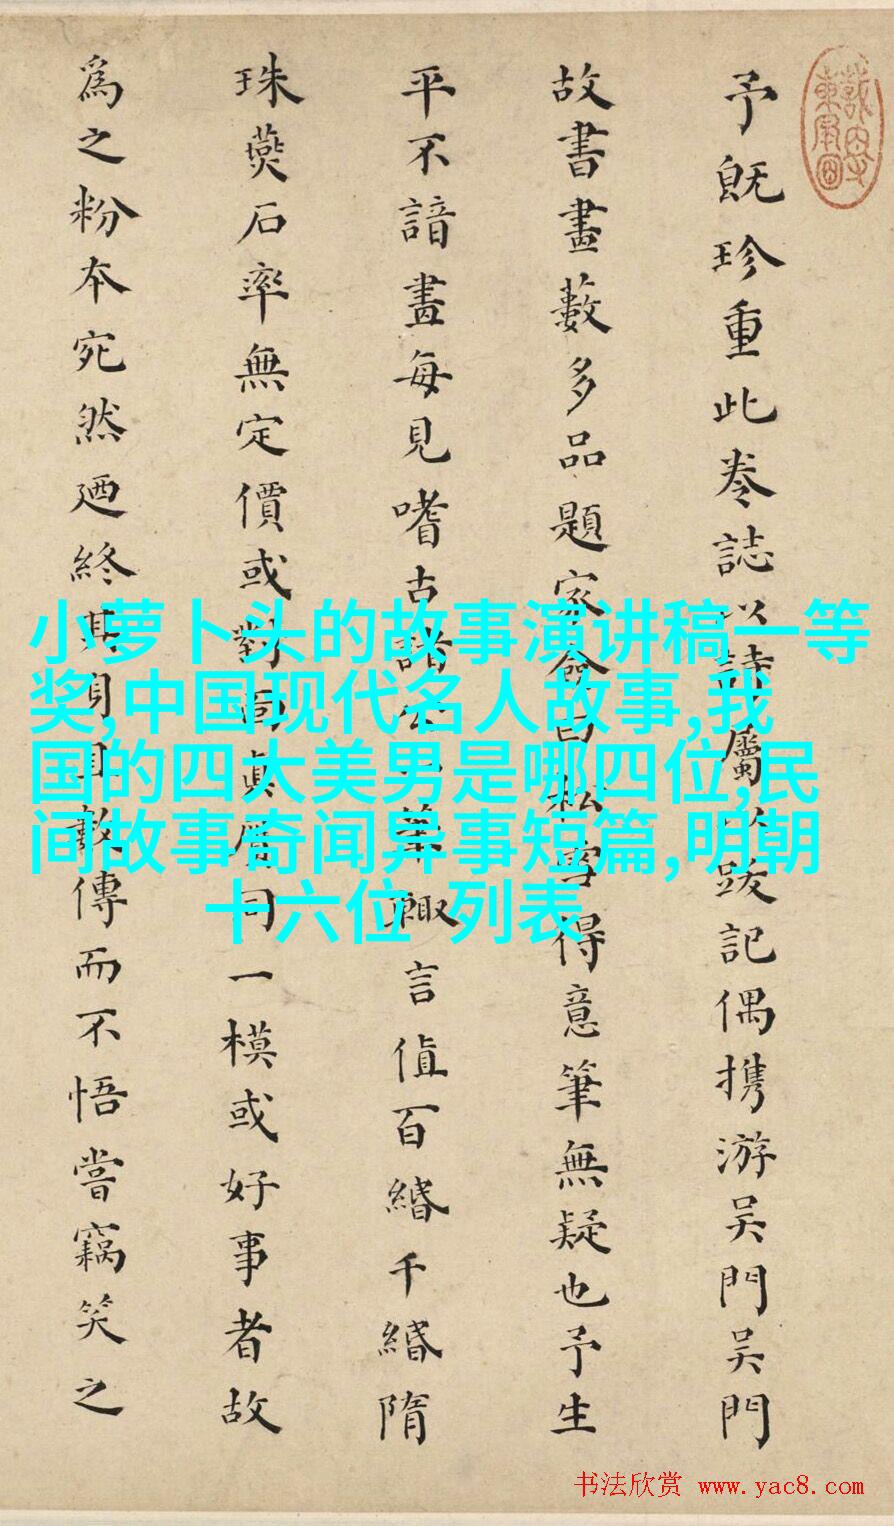 予既珍重此卷誌以詩屬以跋記偶携游吴門吴門
故書畫藪多品題家僉曰松雪得意筆無疑也予生
平不諳畫每見嗜古諸公一筆輙言値百緡千緡隋
珠燕石率無定價或對面眞贋同一模或好事者故
為之粉本宛然廼終其身且數傳而不悟嘗竊笑之
小萝卜头的故事演讲稿一等
奖,中国现代名人故事,我
国的四大美男是哪四位,民
间故事奇闻异事短篇,明朝
十六位 列表
书法欣赏 www.yac8.com